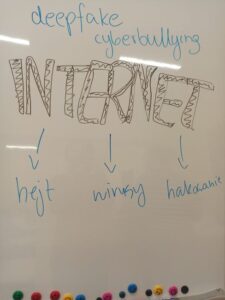 deepfake
cyberbullying
INTERNET
hejt wirusy hakowanie